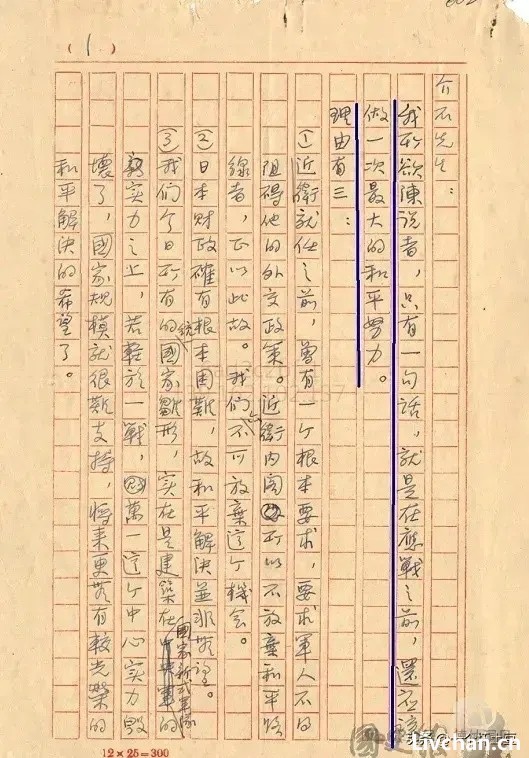 (1)
介石先生：
我所欲陳說者，只有一句話，就是在應戰之前，還应該
做一次最大的和平努力。
理由有三：
①近衛就任之前，曾有一个根本要求，要求軍人不得
阻碍他的外交政策。近衛内閣所以不放棄和平路
線者，正以此故。我们亦不可放棄這个機会。
②日本財政確有根本困難，故和平解决並非無望。
③我们今日所有的統國家雛形，实在是建築在國家新式軍隊的
实力之上，若輕於一戰，萬一這个中心实力毀
壞了，國家規模就很難支持，将来更無有較光榮的
和平解決的希望了。
12×25=300
Livchan.cn